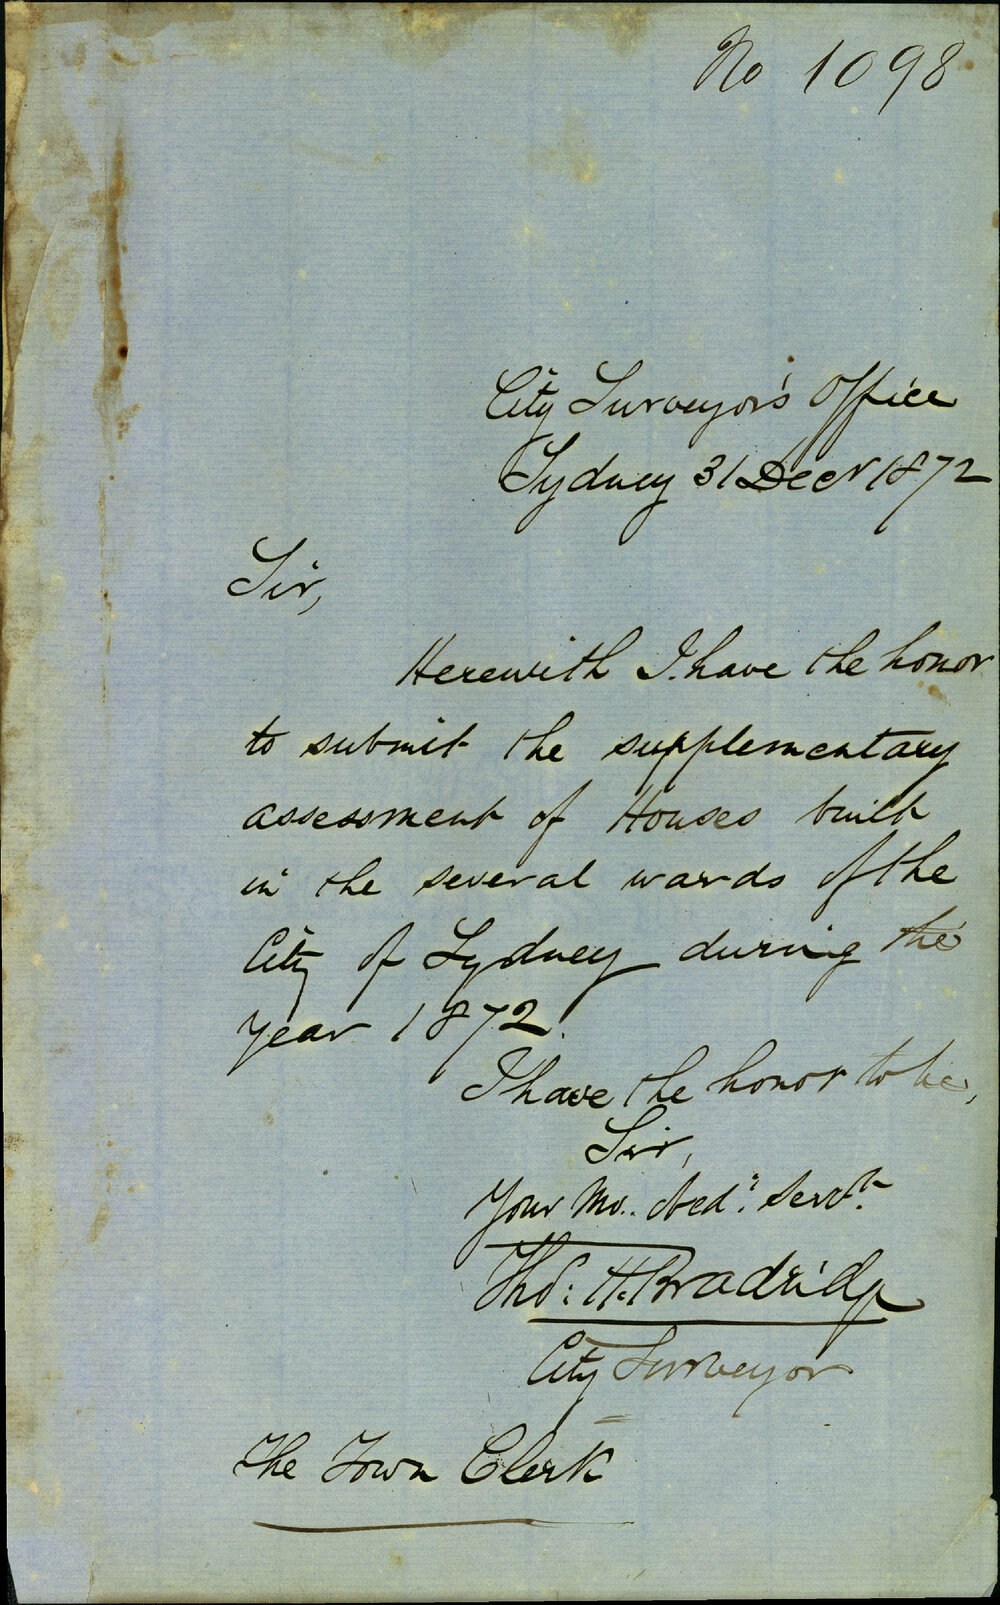 No 1098
City Surveyor's Office
Sydney 31 Decr 1872
Sir,
Herewith I have the honor
to submit the supplementary
assessment of Houses built
in the several wards of the
City of Sydney during the
year 1872.
I have the honor to be,
Sir,
Your Mo.. Obed.t Servt.
Thos: H. Bradridge
City Surveyor
The Town Clerk